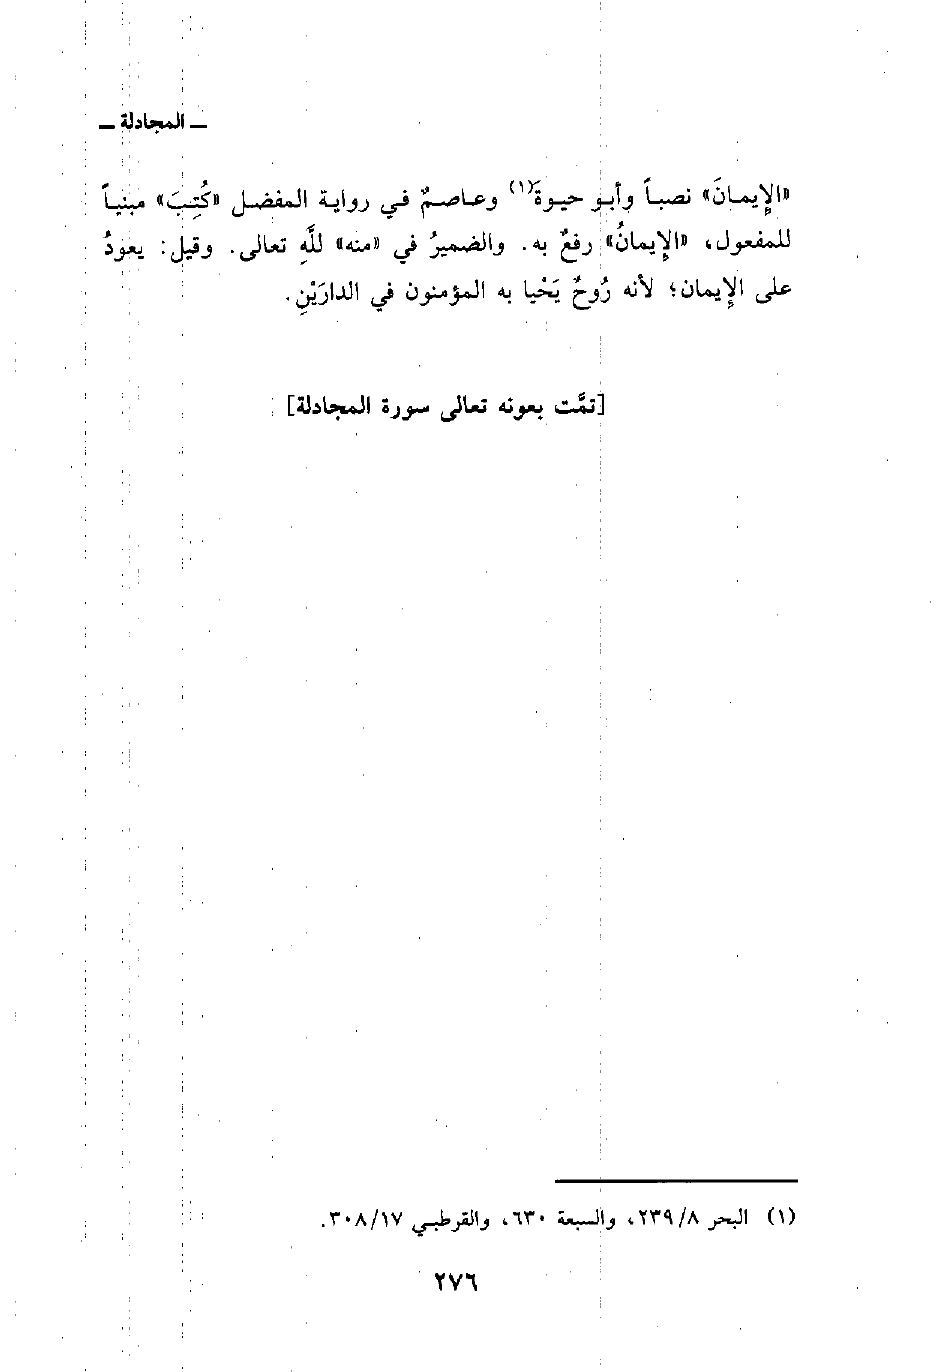 ـ المجادلة ـ
«الإِيمانَ» نصباً وأبو حيوة(١) وعاصمٌ في رواية المفضل «كُتِبَ» مبنياً
للمفعول، «الإِيمانُ» رفعٌ به. والضميرُ في «منه» للَّهِ تعالى. وقيل: يعودُ
على الإِيمان؛ لأنه رُوحٌ يَحْيا به المؤمنون في الدارَيْنِ.
[تمَّت بعونه تعالى سورة المجادلة]
(١) البحر ٢٣٩/٨، والسبعة ٦٣٠، والقرطبي ٣٠٨/١٧.
٢٧٦